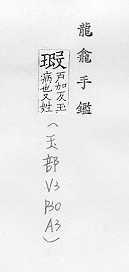 龍龕手鑑
瑕戸加反玉
病也又姓
(玉部V3
P30
A3)